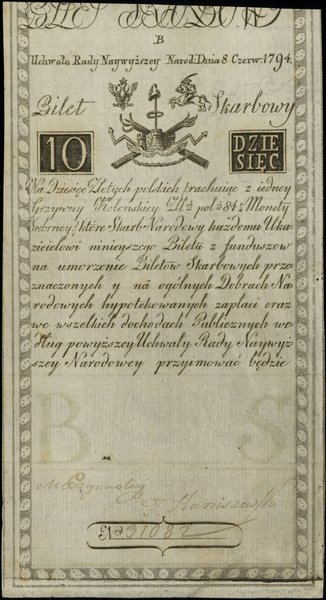 B
Uchwała Rady Naywyższey Narod: Dnia 8 Czerw: 1794.
Bilet Skarbowy
10 DZIE SIĘC
Na Dziesięć Złotych polskich rachuiąc z iedney
Grzywny Kolońskiey Zł: pol: 84½ Monety
Srebrney; które Skarb Narodowy każdemu Uka
zicielowi ninieyszego Biletu z funduszow
na umorzenie Biletow Skarbowych prze
znaczonych y na ogolnych Dobrach Na
rodowych hypotekowanych zapłaci oraz
we wszelkich dochodach Publicznych we
dług powyższey Uchwały Rady Naywyż
szey Narodowey przyimować będzie
B S
F. Staniszewski
No 31082